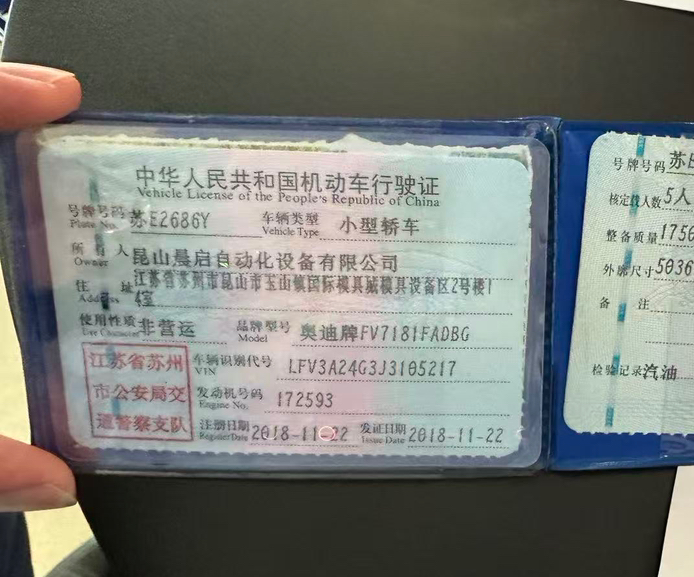 中华人民共和国机动车行驶证
Vehicle License of the People's Republic of China
号牌号码 苏E2686Y 车辆类型 小型轿车
Plate No. Vehicle Type
所有人 昆山晨启自动化设备有限公司
Owner
住址 江苏省苏州市昆山市玉山镇国际模具城模具设备区2号楼1
Address 4室
使用性质 非营运 品牌型号 奥迪牌FV7181FADBG
Use Character Model
江苏省苏州
市公安局交
通警察支队
车辆识别代号 LFV3A24G3J3105217
VIN
发动机号码 172593
Engine No.
注册日期 2018-11-22 发证日期 2018-11-22
Register Date Issue Date
号牌号码 苏E
核定载人数 5人
整备质量 1750
外廓尺寸 5036
备注
检验记录 汽油